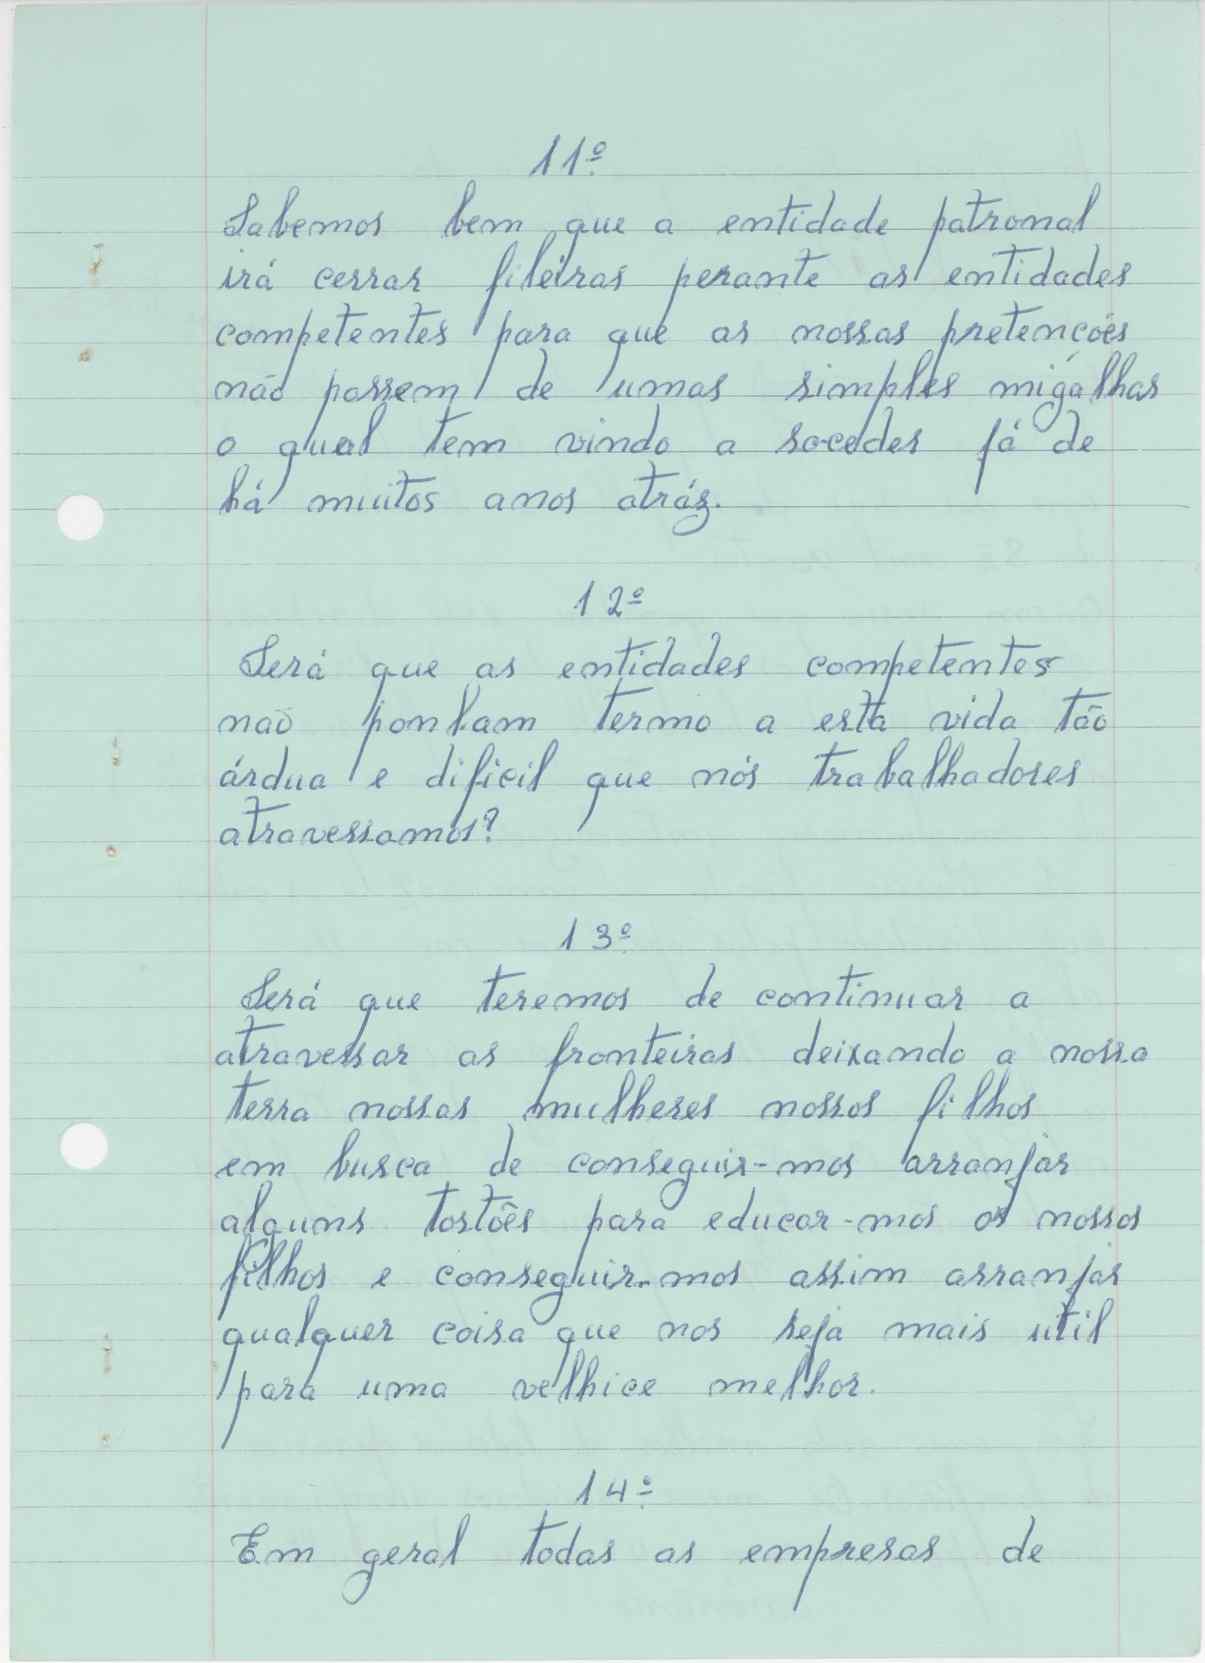 11º
Sabemos bem que a entidade patronal
irá cerrar fileiras perante as entidades
competentes para que as nossas pretenções
não passem de umas simples migalhas
o qual tem vindo a socedes já de
há muitos anos atráz.
12º
Será que as entidades competentes
nao ponham termo a esta vida tão
árdua e dificil que nós trabalhadores
atravessamos?
13º
Será que teremos de continuar a
atravessar as fronteiras deixando a nossa
terra nossas mulheres nossos filhos
em busca de conseguir-mos arranjar
alguns tostões para educar-mos os nossos
filhos e conseguir-mos assim arranjar
qualquer coisa que nos seja mais util
para uma velhice melhor.
14º
Em geral todas as empresas de